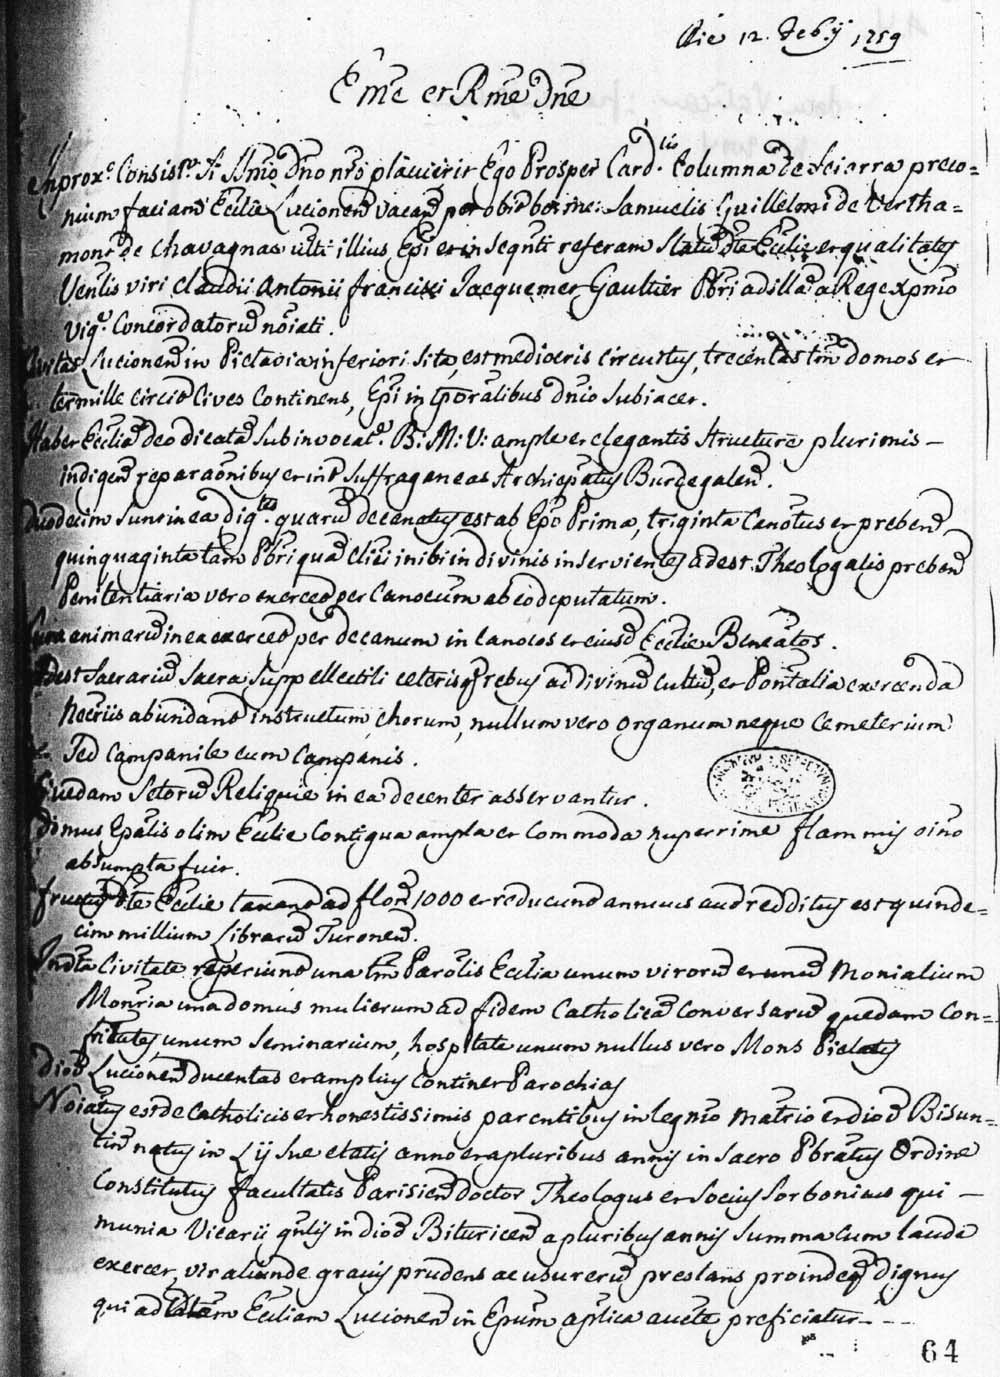 Die 12. Feb.ij 1759
Eme et Rme Dne
In prox.o Consist.o A. Ssmo Dno nro placuerit Ego Prosper Card.lis Columna de Sciarra preco=
nium faciam Ecclie Lucionen vacan per obit bo: me: Samuelis Guillelmi de Vertha=
mont de Chavagnac ulti illius Epi et in sequti referam Statu dte Ecclie et qualitates
Venlis viri Claudii Antonii Francisci Jacquemet Gaultier Pbri ad illa a Rege xpmo
vig.e Concordatoru noiati.
Civitas Lucionen in Pictavia inferiori sita, est mediocris circuitus, trecentas tm domos et
ter mille circit Cives Continens, Epi in tporalibus dnio Subiacet.
Habet Eccliã deo dicatã Sub invocat.e B: M: V: ample et elegantis structure plurimis
indigen reparaonibus et int Suffraganeas Archiepatus Burdegalen.
Duodecim Sunt in ea dig.tes quaru decanatus est ab Epo Prima, triginta Canotus et preben
quinquaginta tam Pbri qua Clici inibi in divinis inservientes adest Theologalis preben
Penitentiaria vero exercet per Canocum ab eo deputatum.
Cura animaru in ea exercet per decanum in Canocos et eiusd Ecclie Bencatos.
Adest Sacrariu Sacra Suppellectili ceterisq rebus ad divinu cultu, et Pontalia exercenda
necriis abundant instructum, chorum, nullum vero organum neque Cemeterium
Sed Campanile cum Campanis.
Quedam Sctoru Reliquie in ea decenter asservantur.
Domus Epalis olim Ecclie Contigua ampla et commoda nuperrime flammis oino
absumpta fuit.
Fructus dte Ecclie taxant ad flor 1000 et reducunt annuus aut redditus est quinde=
cim millium Libraru Turonen.
In dta Civitate reperiunt una tm Parolis Ecclia unum viroru et unu Monialium
Monria una domus mulierum ad fidem Catholica conversaru quedam con=
fritates unum Seminarium, hospitale unum nullus vero Mons Pietatis
Dioc Lucionen ducentas et amplius Continet Parochias
Noiatus est de Catholicis et honestissimis parentibus in legmo Matrio et dioc Bisun=
tin natus in Lij Sue etatis anno et a pluribus annis in Sacro Pbratus Ordine
Constitutus facultatis Parisien doctor Theologus et Socius Sorbonicus qui
munia Vicarii gnlis in dioc Bituricen a pluribus annis Summa cum laude
exercet, vir aliunde gravis prudens ac usu reru prestans proindeq dignus
qui ad Ecclliam Lucionen in Epum aplica aucte preficiatur
64